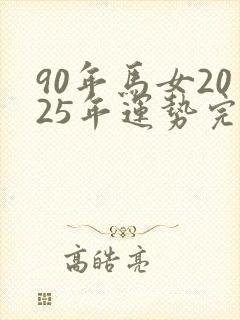 90年馬女20
25年運勢完
高皓亮